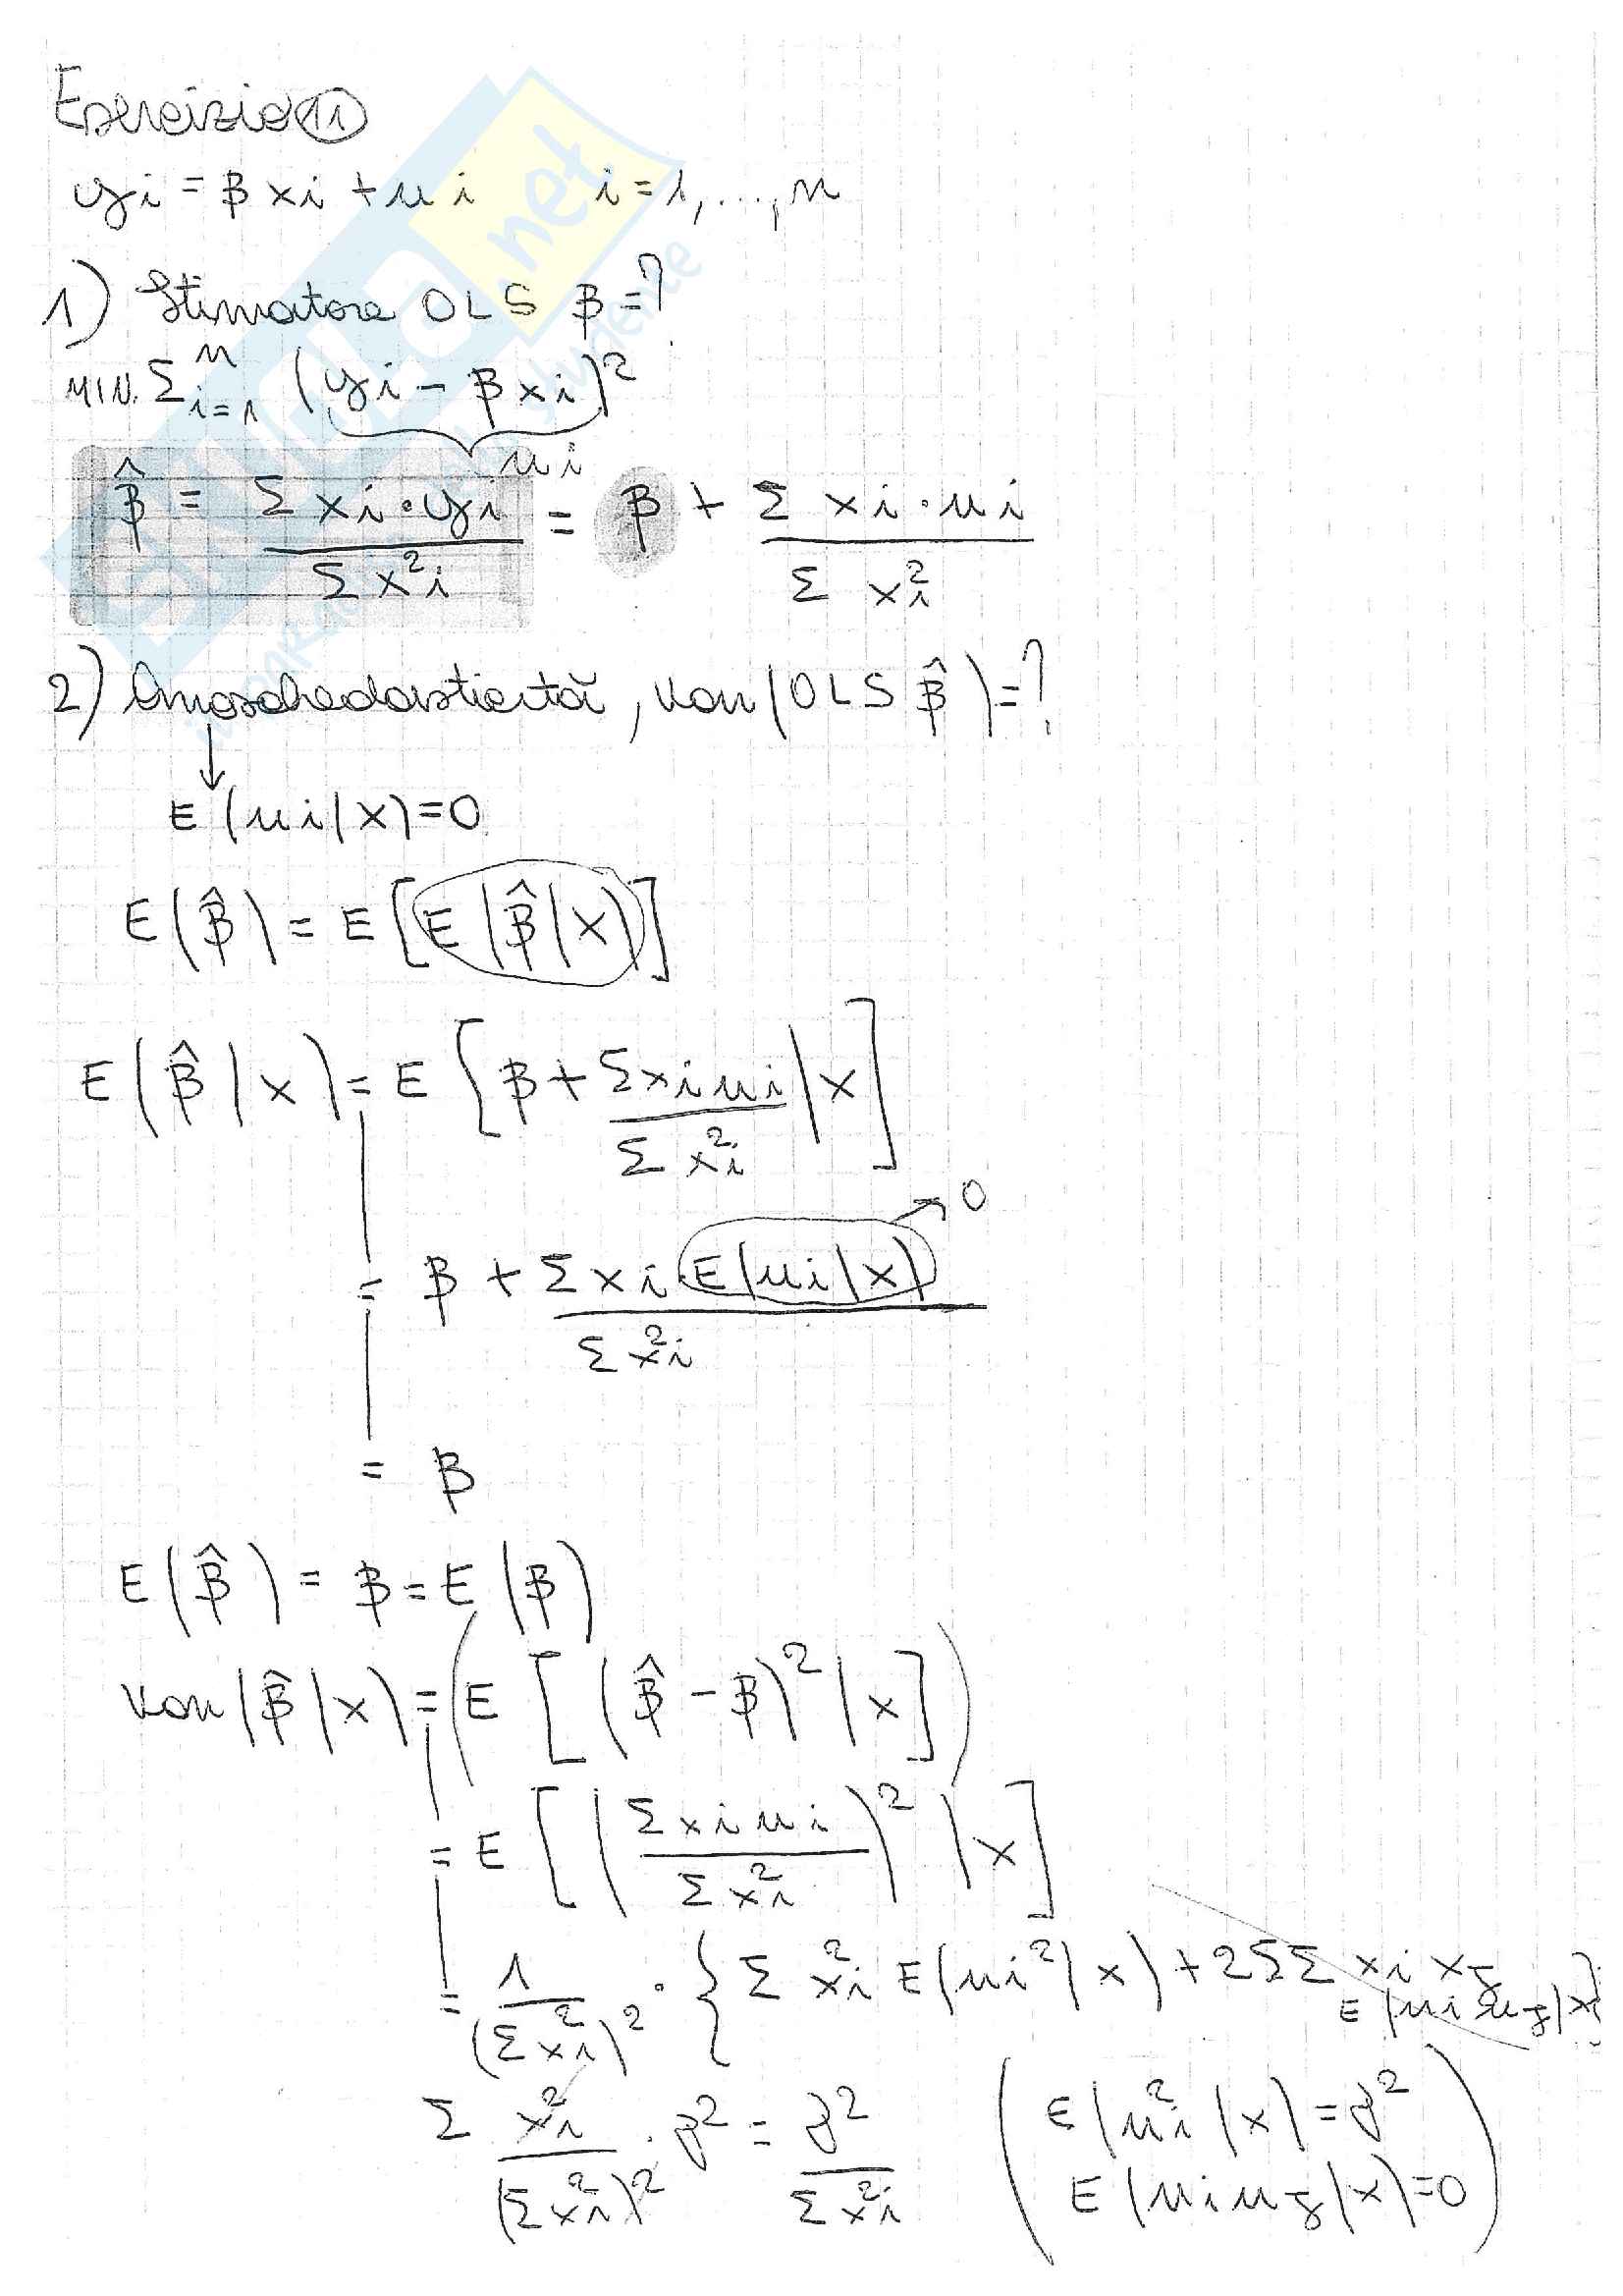 Esercizio 11
yi = β xi + ui i = 1, ..., n
1) Stimatore OLS β = ?
MIN. Σ_{i=1}^{n} (yi - β xi)²
ui
β̂ = Σ xi · yi / Σ x²i = β + Σ xi · ui / Σ x²i
2) Omoschedasticità, var (OLS β̂) = ?
↓
E (ui | x) = 0
E (β̂) = E [E (β̂ | x)]
E (β̂ | x) = E [β + Σ xi ui / Σ x²i | x]
= β + Σ xi · E (ui | x) / Σ x²i → 0
= β
E (β̂) = β = E (β)
var (β̂ | x) = (E [(β̂ - β)² | x])
= E [(Σ xi ui / Σ x²i)² | x]
= 1 / (Σ x²i)² · {Σ x²i E (ui² | x) + 2ΣΣ xi xj E (ui uj | x)}
Σ x²i / (Σ x²i)² · σ² = σ² / Σ x²i (E (u²i | x) = σ²
E (ui uj | x) = 0)
.net